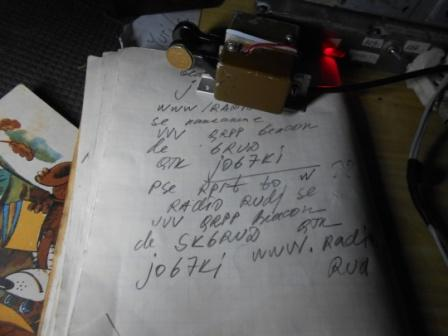 j
www/RADIO
se
VVV QRPP beacon
de 6RUD
QTH jo67ki
pse Rprt to w
RADIO RUD, se
VVV QRPP beacon
de SK6RUD QTH
jo67ki www.Radio
RUd